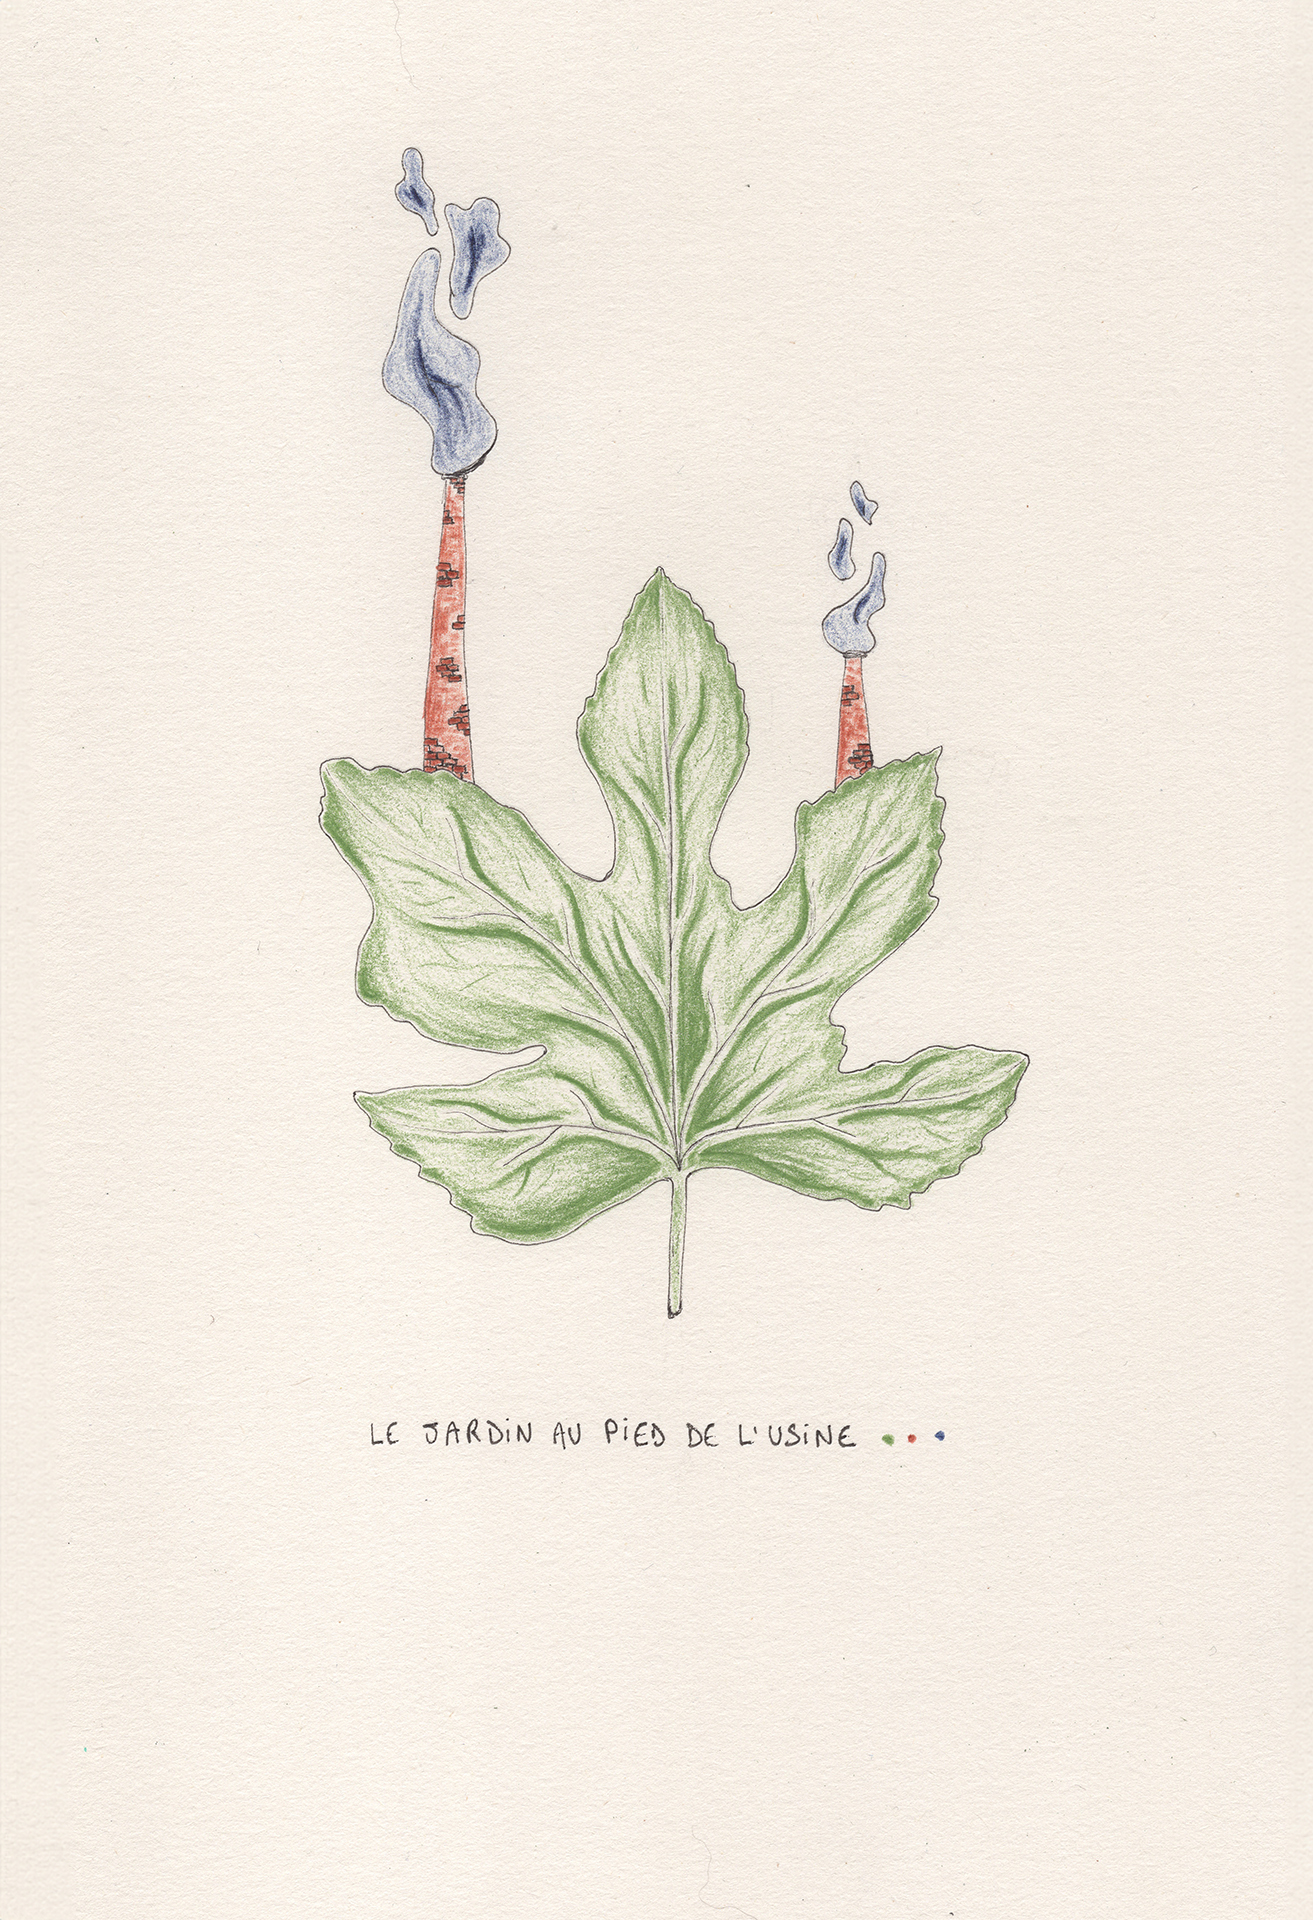 LE JARDIN AU PIED DE L'USINE ...